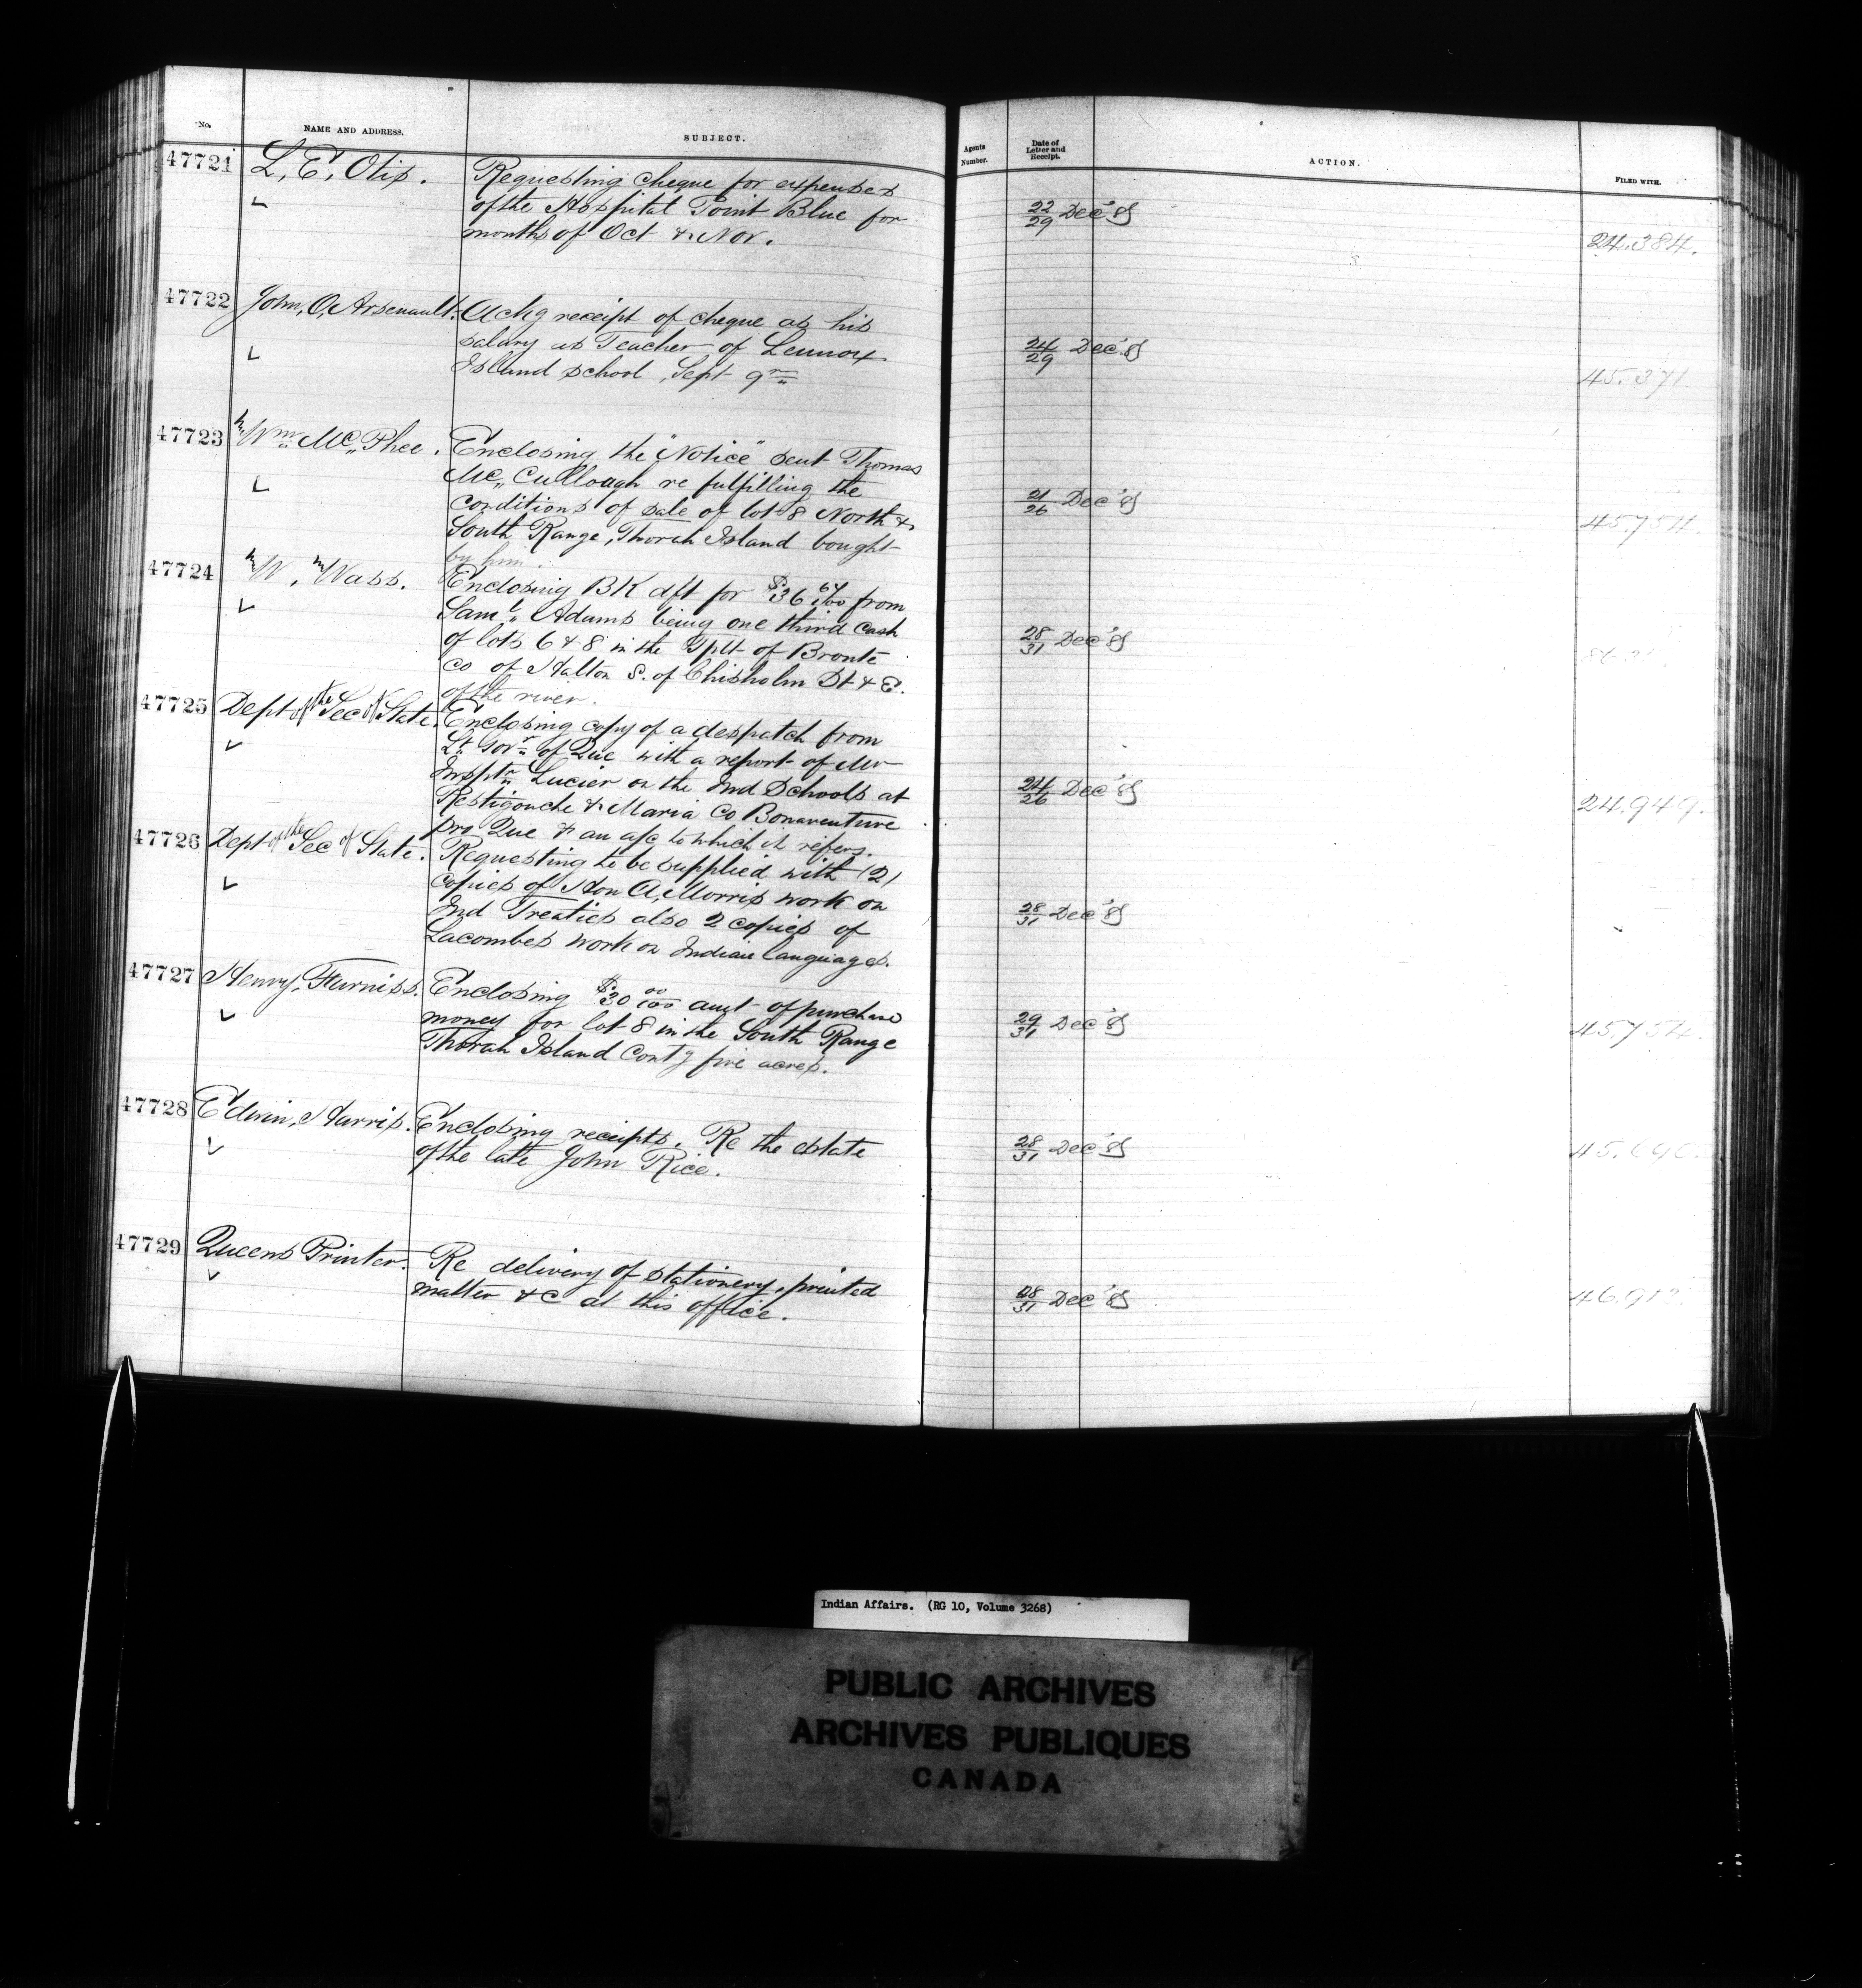 No. NAME AND ADDRESS. SUBJECT.
Agents Number. Date of Letter and Receipt. ACTION. FILED WITH.
47721 L. E. Otis. Requesting cheque for expenses
of the Hospital Point Blue for
months of Oct & Nov.
22/29 Dec '85
24.384.
47722 John, O, Arsenault. Ackg receipt of cheque as his
salary as Teacher of Lennox
Island school, Sept qr
24/29 Dec '85
45.371.
47723 Wm McPhee. Enclosing the "Notice" sent Thomas
McCullough re fulfilling the
conditions of sale of lot 8 North &
South Range, Thorah Island bought
by him.
21/26 Dec '85
45.754.
47724 W. Wass. Enclosing BK dft for $36 64/100 from
Saml. Adams being one third cash
of lots 6 & 8 in the Tplt of Bronte
Co of Halton S. of Chisholm St & E.
of the river.
28/31 Dec '85
47725 Dept of the Sec of State. Enclosing copy of a despatch from
Lt Govr of Que with a report of Mr
Insptr Lucier on the Ind Schools at
Restigouche & Maria Co Bonaventure
pro Que & an a/c to which it refers.
24/26 Dec '85
24.949.
47726 Dept of the Sec of State. Requesting to be supplied with (2)
copies of Hon A, Morris work on
Ind Treaties also 2 copies of
Lacombes work on Indian languages.
28/31 Dec '85
47727 Henry, Furniss. Enclosing $30 00/100 amt of purchase
money for lot 8 in the South Range
Thorah Island Contg five acres.
29/31 Dec '85
45.754.
47728 Edwin, Harris. Enclosing receipts. Re the estate
of the late John Rice.
28/31 Dec '85
47729 Queens Printer. Re delivery of stationery, printed
matter &c at this office.
28/31 Dec '85
Indian Affairs. (RG 10, Volume 3268)
PUBLIC ARCHIVES
ARCHIVES PUBLIQUES
CANADA